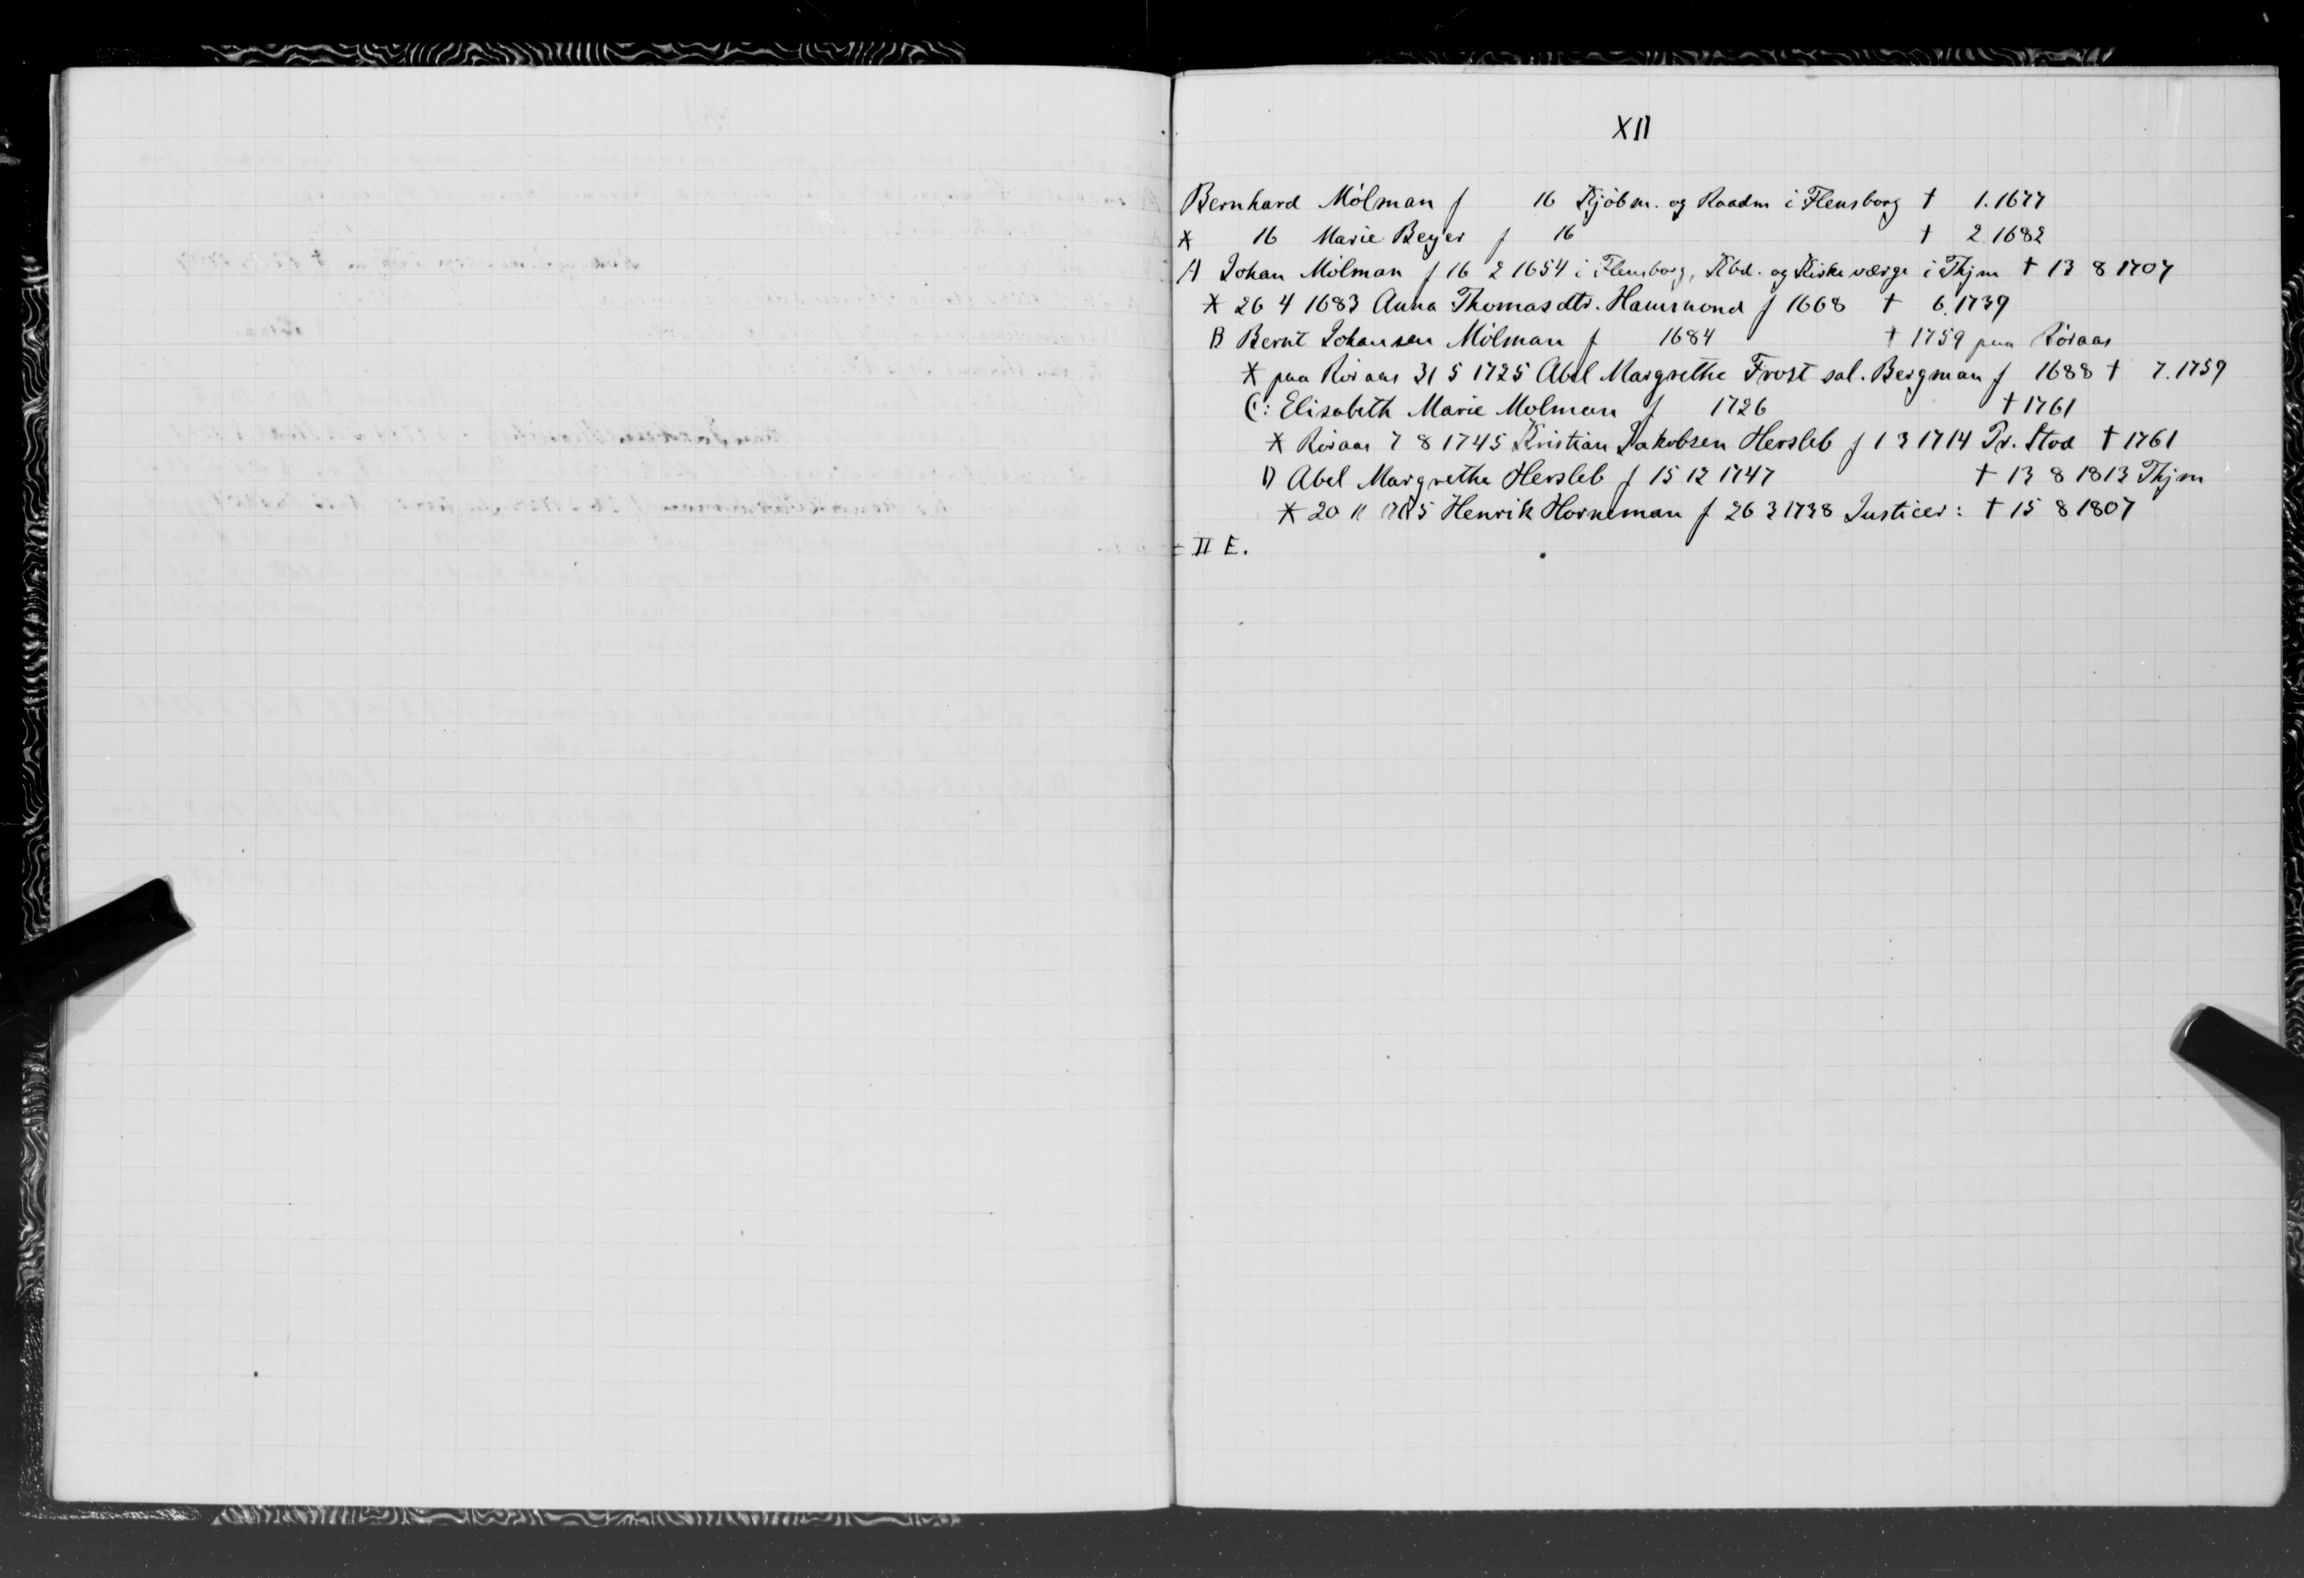 XII
Bernhard Mölman f 16 Kjöbm. og Raadm i Flensborg † 1.1677
* 16 Marie Beyer f 16 † 2.1682
A Johan Mölman f 16 2 1654 i Flensborg, Kbd. og Kirkeværge i Thjm † 13 8 1707
* 26 4 1683 Anna Thomasdtr. Hammond f 1668 † 6.1739
B Bernt Johansen Mölman f 1684 † 1759 paa Röraas
* paa Röraas 31 5 1725 Abel Margrethe Frost sal. Bergman f 1688 † 7.1759
C: Elisabeth Marie Molman f 1726 † 1761
* Röraas 7 8 1745 Kristian Jakobsen Hersleb f 1 3 1714 Pr. Stod † 1761
D Abel Margrethe Hersleb f 15 12 1747 † 13 8 1813 Thjm
* 20 11 1765 Henrik Horneman f 26 3 1738 Justicer: † 15 8 1807
= II E.